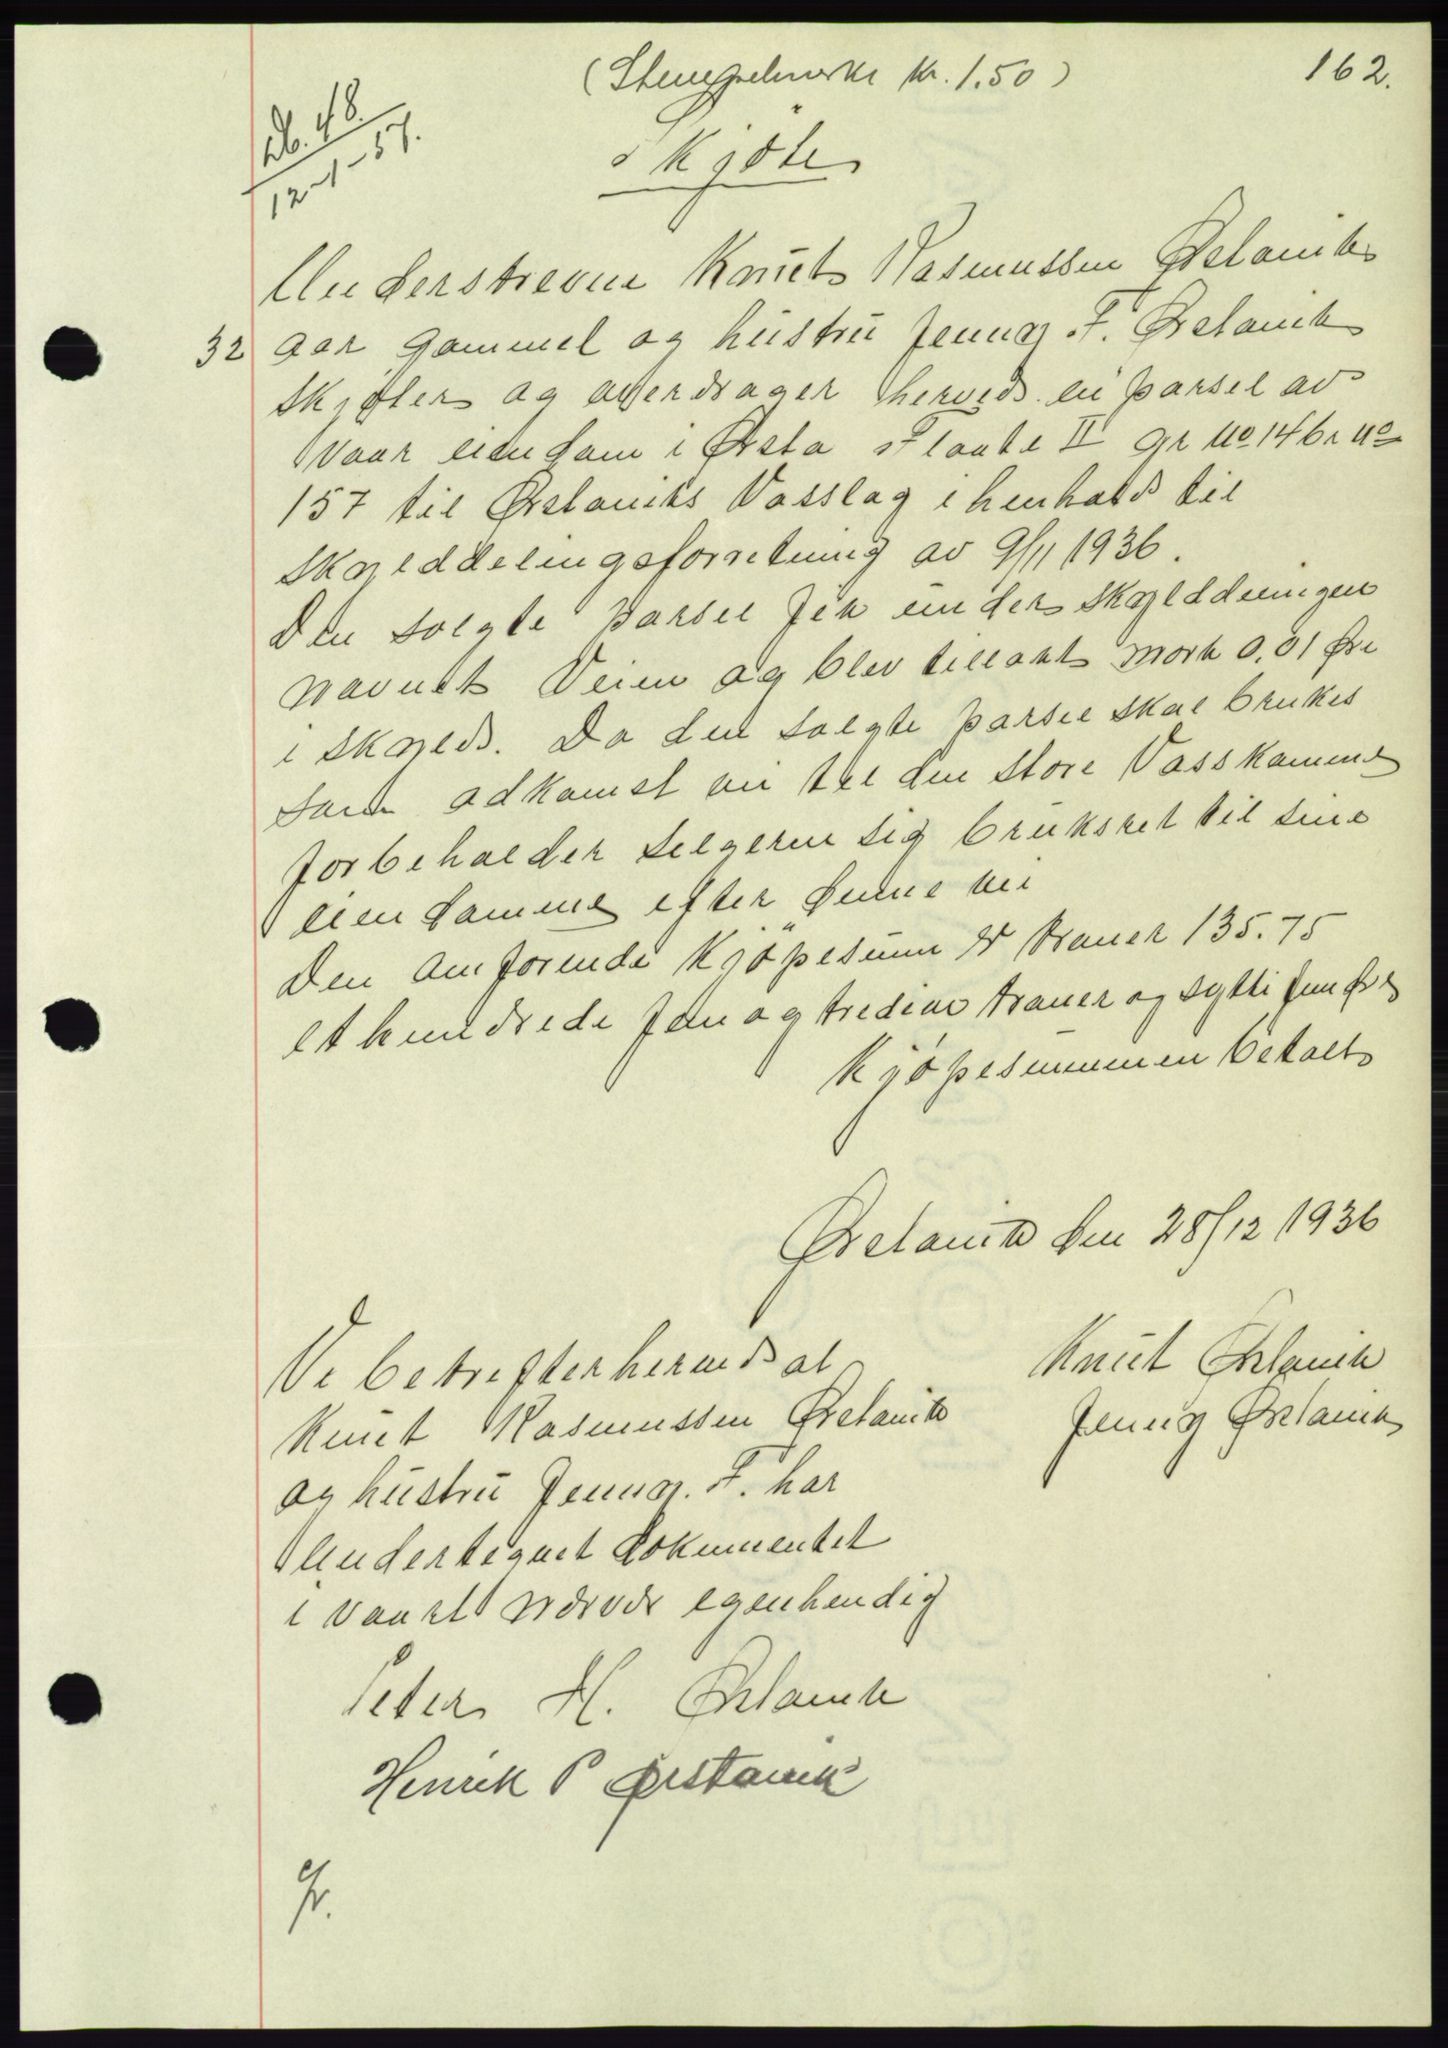 (Stempelmerke kr. 1.50)
162.
Db. 48.
12-1-37.
Skjöte
Understrevne Knut Rasmussen Ørstavik
32 aar gammel og hustru Jenny F. Ørstavik
skjøter og overdrager herved en parsel av
vaar eiendom i Ørsta Flaate II gr no 14 br no
157 til Ørstaviks Vasslag i henhold til
skylddelingsforretning av 9/11 1936.
Den solgte parsel fik under skylddelingen
navnet Veien og blev tillakt mark 0.01 Øre
i skyld. Da den solgte parsel skal brukes
som adkomst vei til den store Vasskumme
forbeholder selgeren sig bruksret til sine
eiendomme efter denne vei
Den omforende kjöpesum er kroner 135.75
et hundrede fem og tredive kroner og sytti fem øre
Kjöpesummen betalt
Ørstavik den 28/12 1936
Vi bekrefter herved at
Knut Rasmussen Ørstavik
og hustru Jenny. F. har
undertegnet dokumentet
i vaart nærvær egenhendig
Knut Ørstavik
Jenny Ørstavik
Peter H. Ørstavik
Henrik P Ørstavik